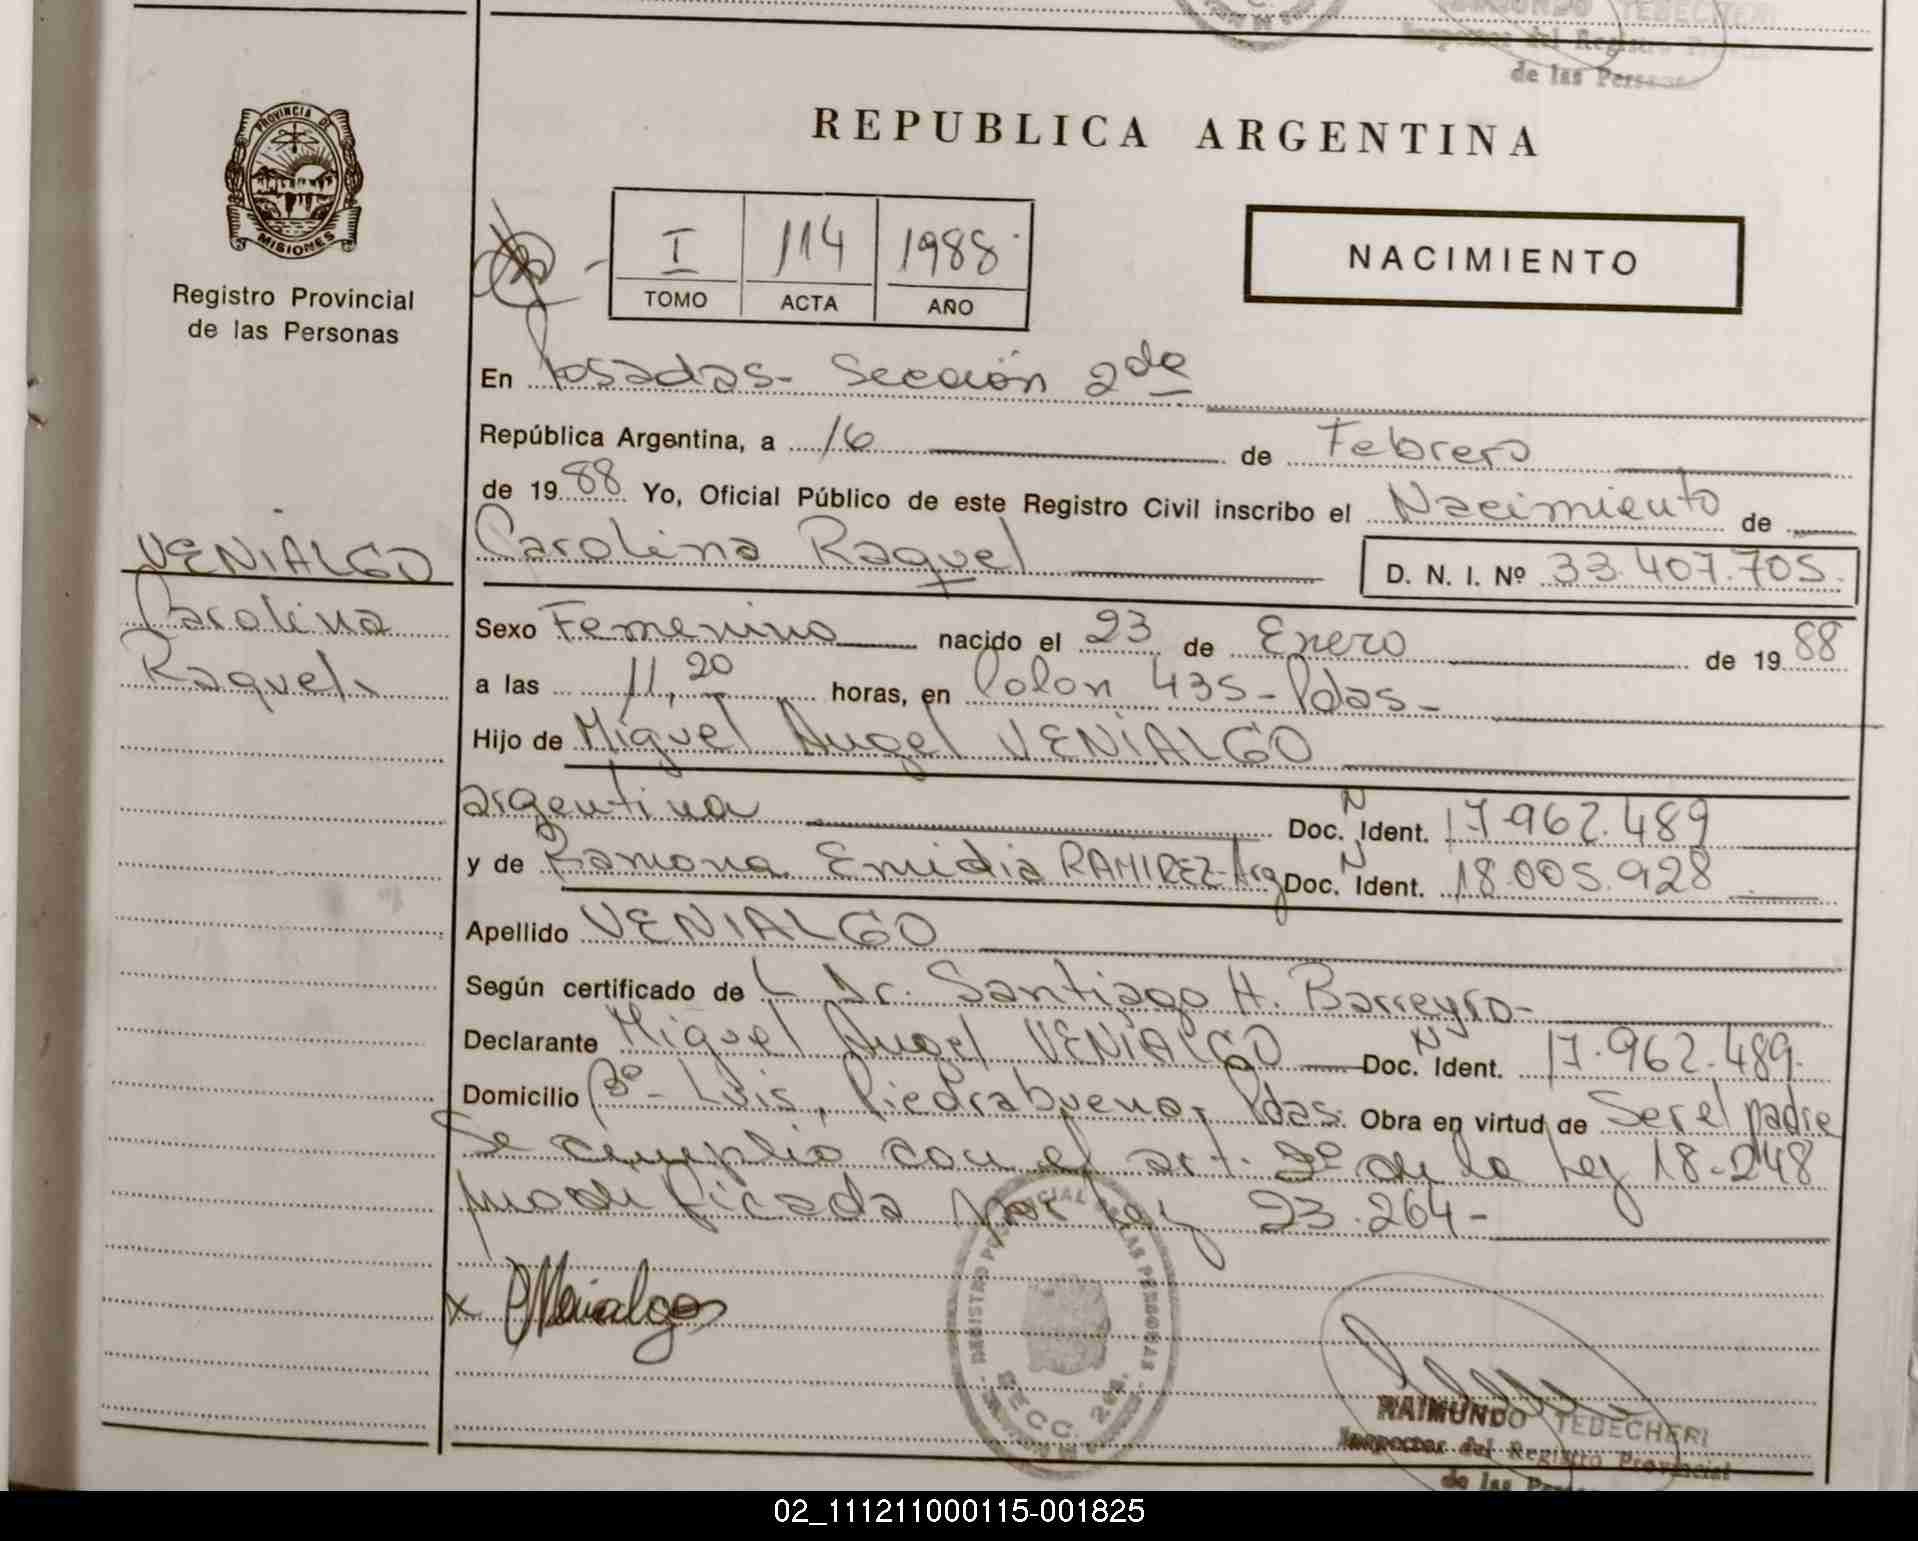 TEDECHERI
Inspector del Registro Provincial
de las Personas
PROVINCIA DE
MISIONES
Registro Provincial
de las Personas
REPUBLICA ARGENTINA
I 114 1988
TOMO ACTA AÑO
NACIMIENTO
En Posadas- Sección 2da
República Argentina, a 16 de Febrero
de 19 88 Yo, Oficial Público de este Registro Civil inscribo el Nacimiento de
VENIALGO
Carolina
Raquel
Carolina Raquel D. N. I. Nº 33.407.705.
Sexo Femenino nacido el 23 de Enero de 19 88
a las 11,20 horas, en Colon 435-Pdas-
Hijo de Miguel Angel VENIALGO
argentina Doc. N Ident. 17.962.489
y de Ramona Emidia RAMIREZ-Arg Doc. N Ident. 18.005.928
Apellido VENIALGO
Según certificado de Dr. Santiago H. Barreyro-
Declarante Miguel Angel VENIALGO Doc. N Ident. 17.962.489.
Domicilio Bº- Luis, Piedrabuena, Pdas. Obra en virtud de Ser el padre
Se cumplio con el art. 2º de la Ley 18.248
modificada por Ley 23.264-
x Venialgo
REGISTRO PROVINCIAL DE LAS PERSONAS
SECC. 2da.
RAIMUNDO TEDECHERI
Inspector del Registro Provincial
de las
02_111211000115-001825